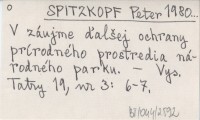 o
SPITZKOPF Peter 1980...
V záujme ďalšej ochrany
prírodného prostredia ná-
rodného parku. - Vys.
Tatry 19, nr 3: 6-7.